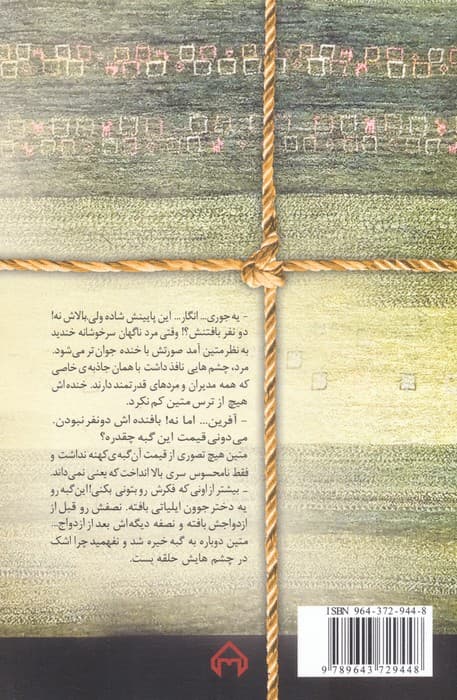 - یه جوری... انگار... این پایینش شاده ولی، بالاش نه!
دو نفر بافتنش؟! وقتی مرد ناگهان سرخوشانه خندید
به نظر متین آمد صورتش با خنده جوان تر می‌شود.
مرد، چشم هایی نافذ داشت با همان جاذبه‌ی خاصی
که همه مدیران و مردهای قدرتمند دارند. خنده‌اش
هیچ از ترس متین کم نکرد.
- آفرین... اما نه! بافنده اش دونفر نبودن.
می دونی قیمت این گبه چقدره؟
متین هیچ تصوری از قیمت آن گبه‌ی کهنه نداشت و
فقط نامحسوس سری بالا انداخت که یعنی نمی‌داند.
- بیشتر از اونی که فکرش رو بتونی بکنی! این گبه رو
یه دختر جوون ایلیاتی بافته. نصفش رو قبل از
ازدواجش بافته و نصفه دیگه‌اش بعد از ازدواج...
متین دوباره به گبه خیره شد و نفهمید چرا اشک
در چشم هایش حلقه بست.
ISBN 964-372-944-8
9 789643 729448